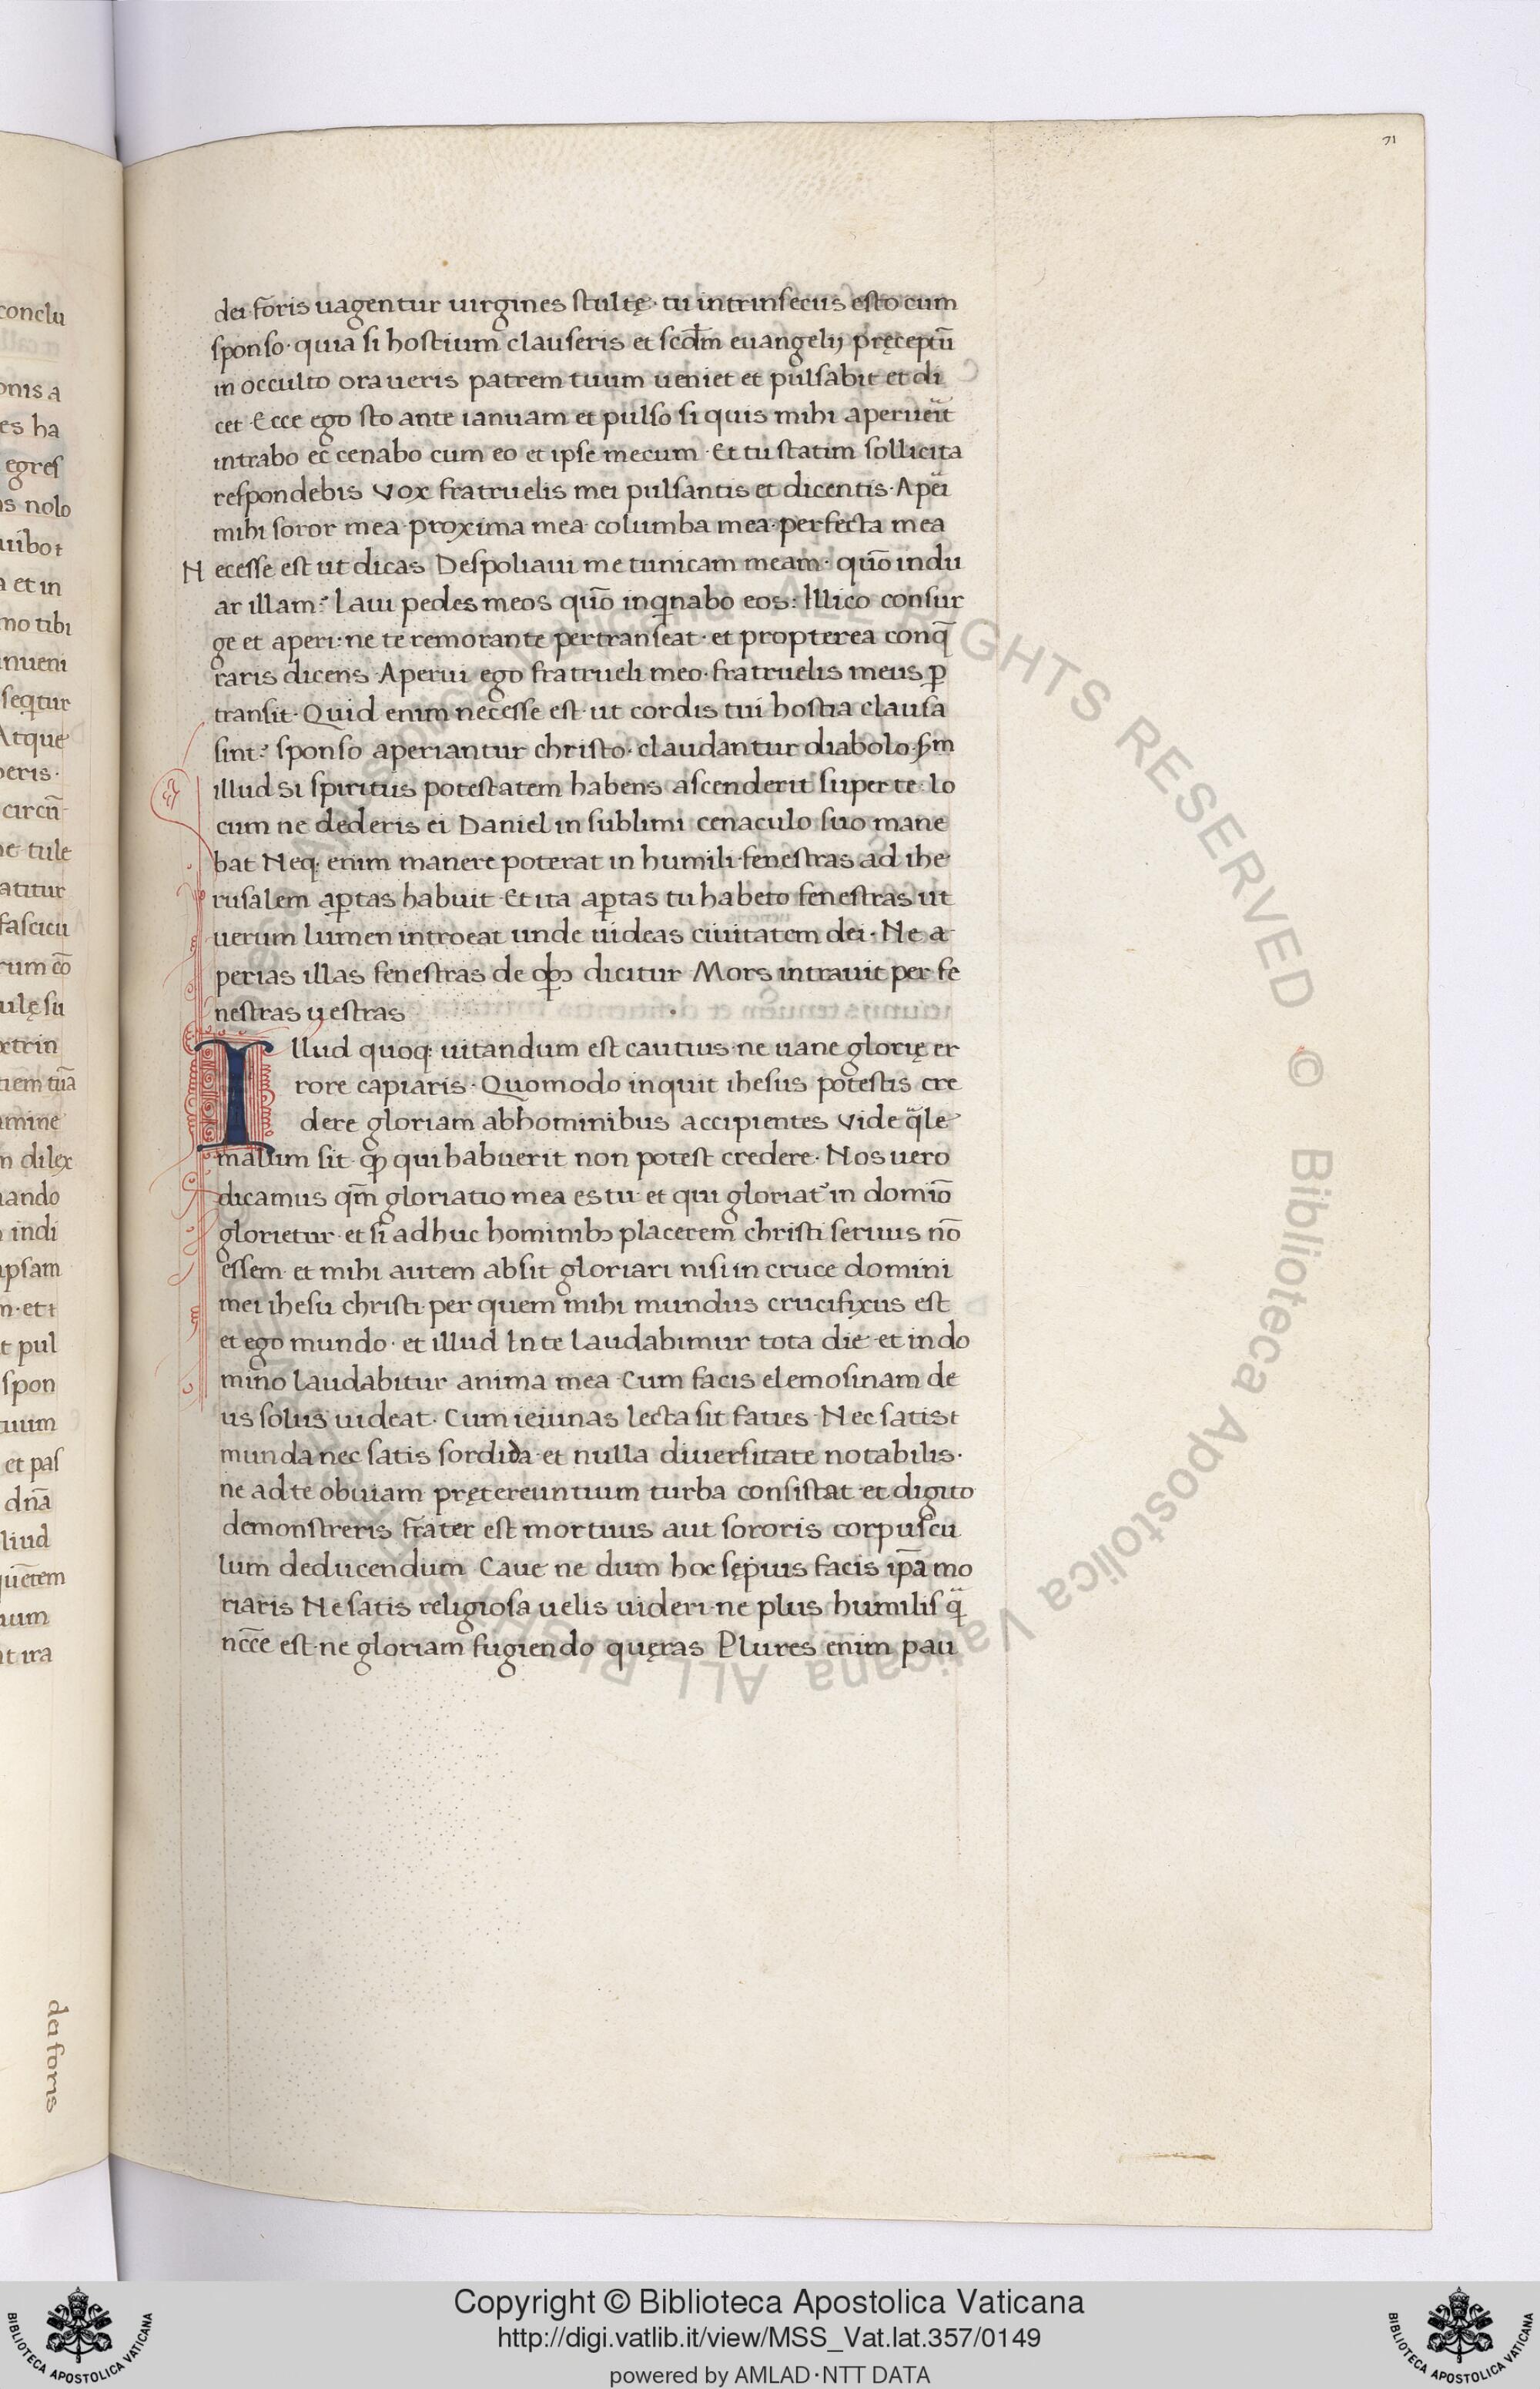 71
dei foris uagentur uirgines stultę· tu intrinsecus esto cum
sponso· quia si hostium clauseris et scdm̄ euangelij pręceptū
in occulto oraueris patrem tuum ueniet et pulsabit et di
cet· Ecce ego sto ante ianuam et pulso si quis mihi aperueit
intrabo et cenabo cum eo et ipse mecum· Et tu statim sollicita
respondebis Vox fratruelis mei pulsantis et dicentis· Apei
mihi soror mea proxima mea columba mea perfecta mea
Necesse est ut dicas Despoliaui me tunicam meam· quō indu
ar illam? laui pedes meos quō inqnabo eos: Illico consur
ge et aperi: ne te remorante pertranseat· et propterea conq̄
raris dicens· Aperui ego fratrueli meo· fratruelis meus ꝑ
transit· Quid enim necesse est· ut cordis tui hostia clausa
sint? sponso aperiantur christo· claudantur diabolo· sm
illud Si spiritus potestatem habens ascenderit super te· lo
cum ne dederis ei Daniel in sublimi cenaculo suo mane
bat Neq; enim manere poterat in humili· fenestras ad ihe
rusalem aꝑtas habuit· Et ita aꝑtas tu habeto fenestras ut
uerum lumen introeat unde uideas ciuitatem dei· Ne a
perias illas fenestras de qbꝫ dicitur Mors intrauit per fe
nestras uestras
Illud quoq; uitandum est cautius· ne uane glorię er
rore capiaris· Quomodo inquit ihesus potestis cre
dere gloriam abhominibus accipientes Vide qle
malum sit qp qui habuerit non potest credere· Nos uero
dicamus qm̄ gloriatio mea es tu· et qui gloriat in domīo
glorietur· et si adhuc hominibꝫ placerem christi seruus nō
essem· et mihi autem absit gloriari nisi in cruce domini
mei ihesu christi· per quem mihi mundus crucifixus est
et ego mundo· et illud In te laudabimur tota die· et in do
mino laudabitur anima mea· Cum facis elemosinam de
us solus uideat· Cum ieiunas lecta sit faties· Nec satis t
munda nec satis sordida· et nulla diuersitate notabilis·
ne ad te obuiam prętereuntium turba consistat· et digito
demonstreris frater est mortuus aut sororis corpuscu
lum deducendum· Caue ne dum hoc sępius facis ip̄a mo
riaris Ne satis religiosa uelis uideri· ne plus humilis q
ncc̄e est· ne gloriam fugiendo quęras Plures enim pau
dei foris
© Biblioteca Apostolica Vaticana ALL RIGHTS RESERVED
Copyright © Biblioteca Apostolica Vaticana
http://digi.vatlib.it/view/MSS_Vat.lat.357/0149
powered by AMLAD·NTT DATA
BIBLIOTECA APOSTOLICA VATICANA
BIBLIOTECA APOSTOLICA VATICANA